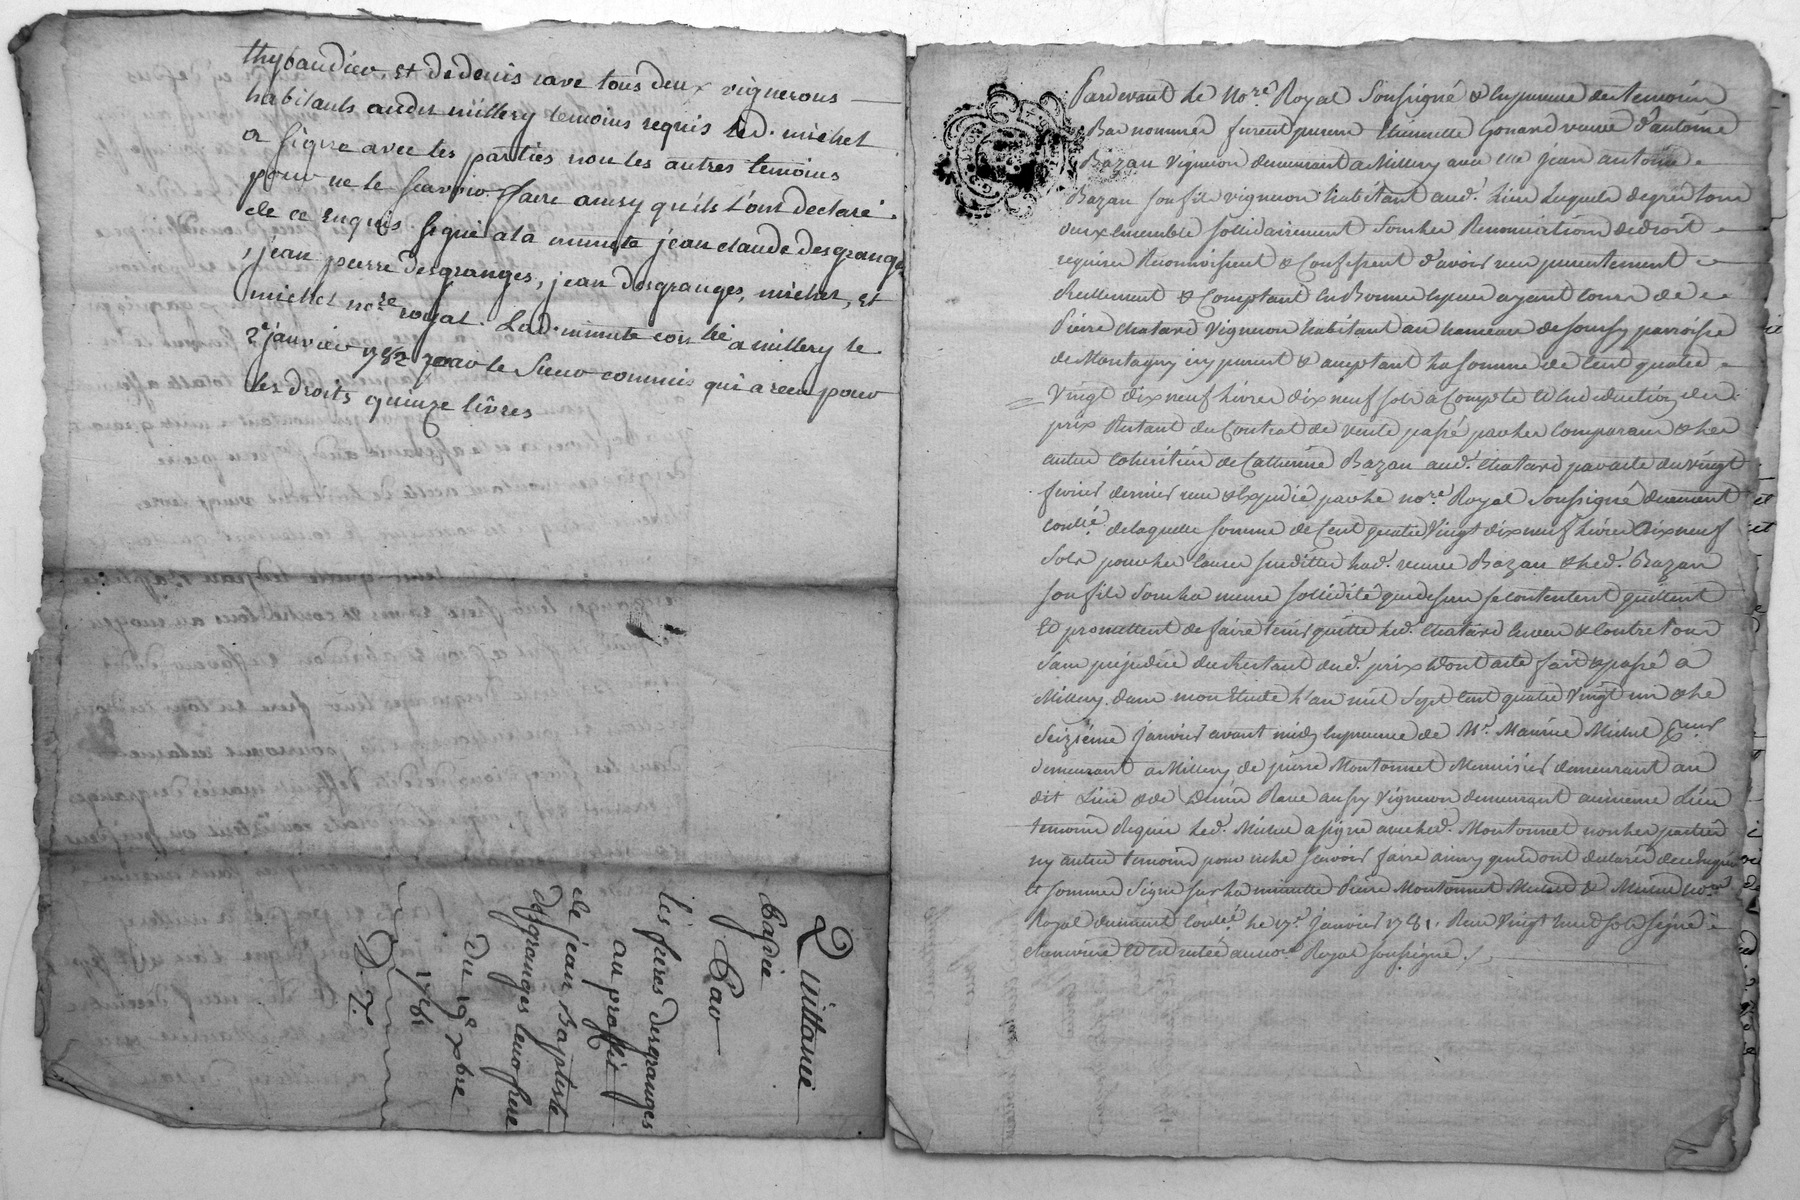 thybaudier et de denis rave tous deux vignerons
habitants audit millery temoins requis led. michel
a signe avec les parties non les autres temoins
pour ne le scavoir faire ainsy qu'ils l'ont declaré
de ce enquis. signé a la minute jean claude desgranges
, jean pierre desgranges, jean desgranges, michel, et
michel no.re royal. Lad. minute con.lée a millery le
2e janvier 1782 par le Sieur commis qui a reçu pour
les droits quinze livres
Quittance
Passée
Par
les freres desgranges
au proffit
de jean Baptiste
desgranges leur frere
du 19e xbre
1781
Pardevant le No.re Royal Soussigné & en presence des temoins
Bas nommés furent presents Ennemonde Gonard veuve d'antoine
Bazan Vigneron demeurant a Millery avec jean antoine
Bazan son fils vigneron habitant aud. Lieu Lesquels de gré tous
deux ensemble sollidairement Sous les Renonciations de droit
requises Reconnoissent & Confessent d'avoir reçu presentement
Reellement & Comptant En Bonnes Especes ayant cours de
Pierre Chatard Vigneron habitant au hameau de Soursy parroisse
de Montagny icy present & acceptant La somme de Cent quatre
Vingt dix neuf Livres dix neuf sols a Compte et En deduction du
prix Restant du Contrat de vente passé par les Comparans & les
autres Coheritiers de Catherine Bazan aud. Chatard par acte du vingt
fevrier dernier reçu & Expedié par le no.re Royal Soussigné duement
con.lé. de laquelle somme de Cent quatre Vingt dix neuf Livres Dix neuf
Sols pour les causes susdittes Lad. veuve Bazan & led. Bazan
son fils Sous la meme sollidité que dessus se contentent quittent
Et promettent de faire tenir quitte led. Chatard Envers & Contre tous
Sans prejudice du Restant dud. prix Dont acte fait & passé a
Millery dans mon Etude L'an mil Sept Cent quatre Vingt un & le
Seizième Janvier avant midy En presence de M.r Maurice Michel
demeurant a Millery de pierre Montonnet Menuisier demeurant au
dit Lieu & de Denis Rave aussy Vigneron demeurant au meme Lieu
temoins Requis Led. Michel a signé avec led. Montonnet non les parties
ny autre temoin pour ne le scavoir faire ainsy qu'ils ont declarés de ce Enquis
Et sommés Signé sur la minutte Pierre Montonnet Michel & Michel no.re
Royal duement con.lé. le 17.e Janvier 1781. Reçu Vingt huit sols signé
Royal soussigné.